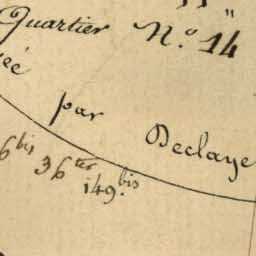 Quartier N.º 14
ée
par Declaye
6 bis 36 ter 149. bis